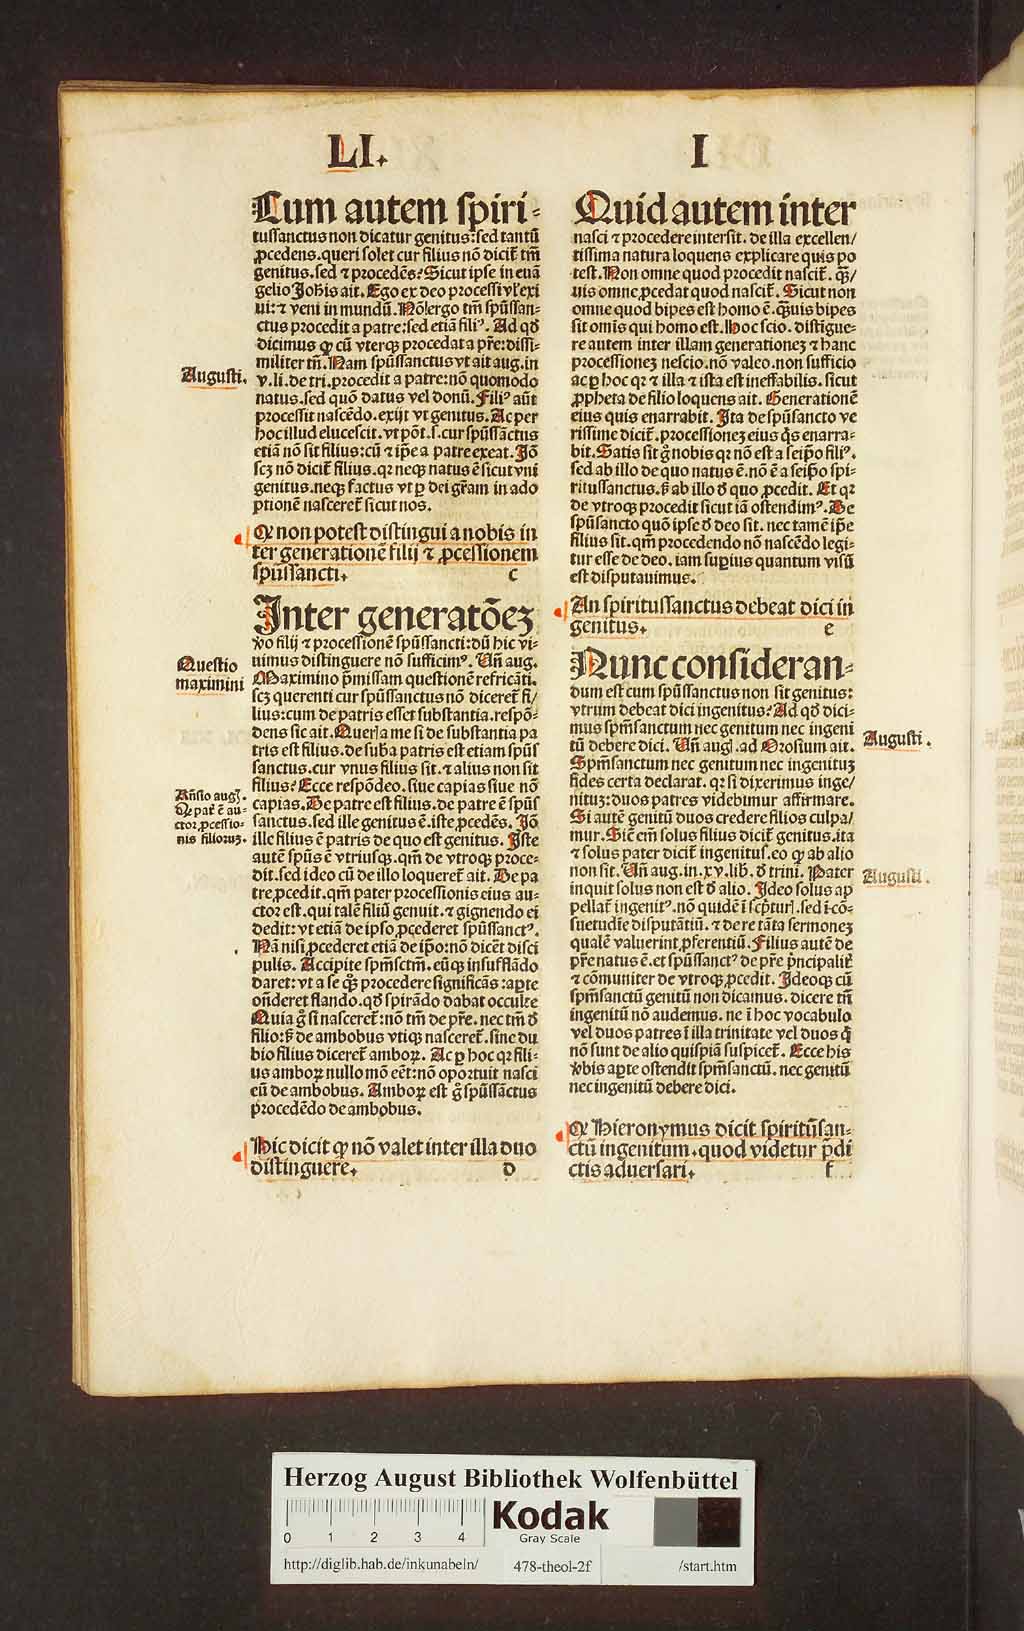 LI.
I
Cum autem spiri-
tussanctus non dicatur genitus: sed tantū
ꝓcedens. queri solet cur filius nō dicit̄ tm̄
genitus. sed ⁊ procedēs? Sicut ipse in euā
gelio Johīs ait. Ego ex deo processi vĺ exi
ui: ⁊ veni in mundū. Nō ergo tm̄ spūssan-
ctus procedit a patre: sed etiā filiꝰ. Ad qđ
dicimus ꝙ cū vterqꝫ procedat a pr̄e: dissi-
militer tn̄. Nam spūssanctus vt ait aug. in
v. li. de tri. procedit a patre: nō quomodo
natus. sed quō datus vel donū. Filiꝰ aūt
processit nascēdo. exijt vt genitus. Ac per
hoc illud elucescit. vt pōt. s. cur spūssāctus
etiā nō sit filius: cū ⁊ ip̄e a patre exeat. Jō
scꝫ nō dicit̄ filius. qꝛ neqꝫ natus ē sicut vni
genitus. neqꝫ factus vt ꝑ dei gr̄am in ado
ptionē nasceret̄ sicut nos.
Augusti.
Qꝛ non potest distingui a nobis in
ter generationē filij ⁊ ꝓcessionem
spūssancti. c
Inter generatōeꝫ
v̄o filij ⁊ processionē spūssancti: dū hic vi-
uimus distinguere nō sufficimꝰ. Vn̄ aug.
Maximino p̄missam questionē refricāti.
scꝫ querenti cur spūssanctus nō diceret̄ fi/
lius: cum de patris esset substantia. respō-
dens sic ait. Queris a me si de substantia pa
tris est filius. de sub̄a patris est etiam spūs
sanctus. cur vnus filius sit. ⁊ alius non sit
filius? Ecce respōdeo. siue capias siue nō
capias. De patre est filius. de patre ē spūs
sanctus. sed ille genitus ē. iste ꝓcedēs. Jō
ille filius ē patris de quo est genitus. Iste
autē spūs ē vtriusqꝫ. qm̄ de vtroqꝫ proce-
dit. sed ideo cū de illo loqueret̄ ait. De pa
tre ꝓcedit. qm̄ pater processionis eius au-
ctor est. qui talē filiū genuit. ⁊ gignendo ei
dedit: vt etiā de ipso ꝓcederet spūssanctꝰ.
Nā nisi ꝓcederet etiā de ip̄o: nō dicēt disci
pulis. Accipite spm̄sctm̄. eūqꝫ insufflādo
daret: vt a se qꝫ procedere significās: aꝑte
on̄deret flando. qđ spirādo dabat occulte
Quia ḡ si nasceret̄: nō tm̄ de pr̄e. nec tm̄ đ
filio: sꝫ de ambobus vtiqꝫ nasceret̄. sine du
bio filius diceret̄ amboꝝ. Ac ꝑ hoc qꝛ fili-
us amboꝝ nullo mō eēt: nō oportuit nasci
eū de ambobus. Amboꝝ est ḡ spūssāctus
procedēdo de ambobus.
Questio
maximini
Rn̄sio augĺ.
Qꝛ patˀ ē au-
ctor ꝓcessio-
nis filiorum.
Hic dicit ꝙ nō valet inter illa duo
distinguere. D
Quid autem inter
nasci ⁊ procedere intersit. de illa excellen/
tissima natura loquens explicare quis po
test. Non omne quod procedit nascit̄. qꝫ/
uis omne ꝓcedat quod nascit̄. Sicut non
omne quod bipes est homo ē. qꝫuis bipes
sit omīs qui homo est. Hoc scio. distīgue-
re autem inter illam generationeꝫ ⁊ hanc
processioneꝫ nescio. nō valeo. non sufficio
ac ꝑ hoc qꝛ ⁊ illa ⁊ ista est ineffabilis. sicut
ꝓpheta de filio loquens ait. Generationē
eius quis enarrabit. Ita de spūsancto ve
rissime dicit̄. processioneꝫ eius q̄s enarra-
bit. Satis sit ḡ nobis qꝛ nō est a seip̄o filiꝰ.
sed ab illo de quo natus ē. nō ē a seip̄o spi-
ritussanctus. sꝫ ab illo đ quo ꝓcedit. Et qꝛ
de vtroqꝫ procedit sicut iā ostendimꝰ. De
spūsancto quō ipse đ deo sit. nec tamē ip̄e
filius sit. qm̄ procedendo nō nascēdo legi-
tur esse de deo. iam suꝑius quantum visū
est disputauimus.
An spiritussanctus debeat dici in
genitus. e
Nunc consideran-
dum est cum spūssanctus non sit genitus:
vtrum debeat dici ingenitus? Ad qđ dici-
mus spm̄sanctum nec genitum nec ingeni
tū debere dici. Vn̄ augĺ. ad Orosium ait.
Spm̄sanctum nec genitum nec ingenituꝫ
fides certa declarat. qꝛ si dixerimus inge/
nituꝫ: duos patres videbimur affirmare.
Si autē genitū duos credere filios culpa/
mur. Sic̄ em̄ solus filius dicit̄ genitus. ita
⁊ solus pater dicit̄ ingenitus. eo ꝙ ab alio
non sit. Vn̄ aug. in. xv. lib. đ trini. Pater
inquit solus non est đ alio. Ideo solus ap
pellat̄ ingenitꝰ. nō quidē ī scp̄turĺ. sed ī cō-
suetudīe disputātiū. ⁊ de re tāta sermoneꝫ
qualē valuerint ꝓferentiū. Filius autē de
pr̄e natus ē. et spūssanctꝰ de pr̄e p̄ncipalit̄
⁊ cōmuniter de vtroqꝫ ꝓcedit. Ideoqꝫ cū
spm̄sanctū genitū non dicamus. dicere tn̄
ingenitū nō audemus. ne ī hoc vocabulo
vel duos patres ī illa trinitate vel duos q̄
nō sunt de alio quispiā suspicet̄. Ecce his
v̄bis aꝑte ostendit spm̄sanctū. nec genitū
nec ingenitū debere dici.
Augusti.
Augusti.
Qꝛ Hieronymus dicit spiritūsan-
ctū ingenitum. quod videtur p̄di
ctis aduersari. f
Herzog August Bibliothek Wolfenbüttel
0 1 2 3 4
Kodak
Gray Scale
http://diglib.hab.de/inkunabeln/ 478-theol-2f /start.htm